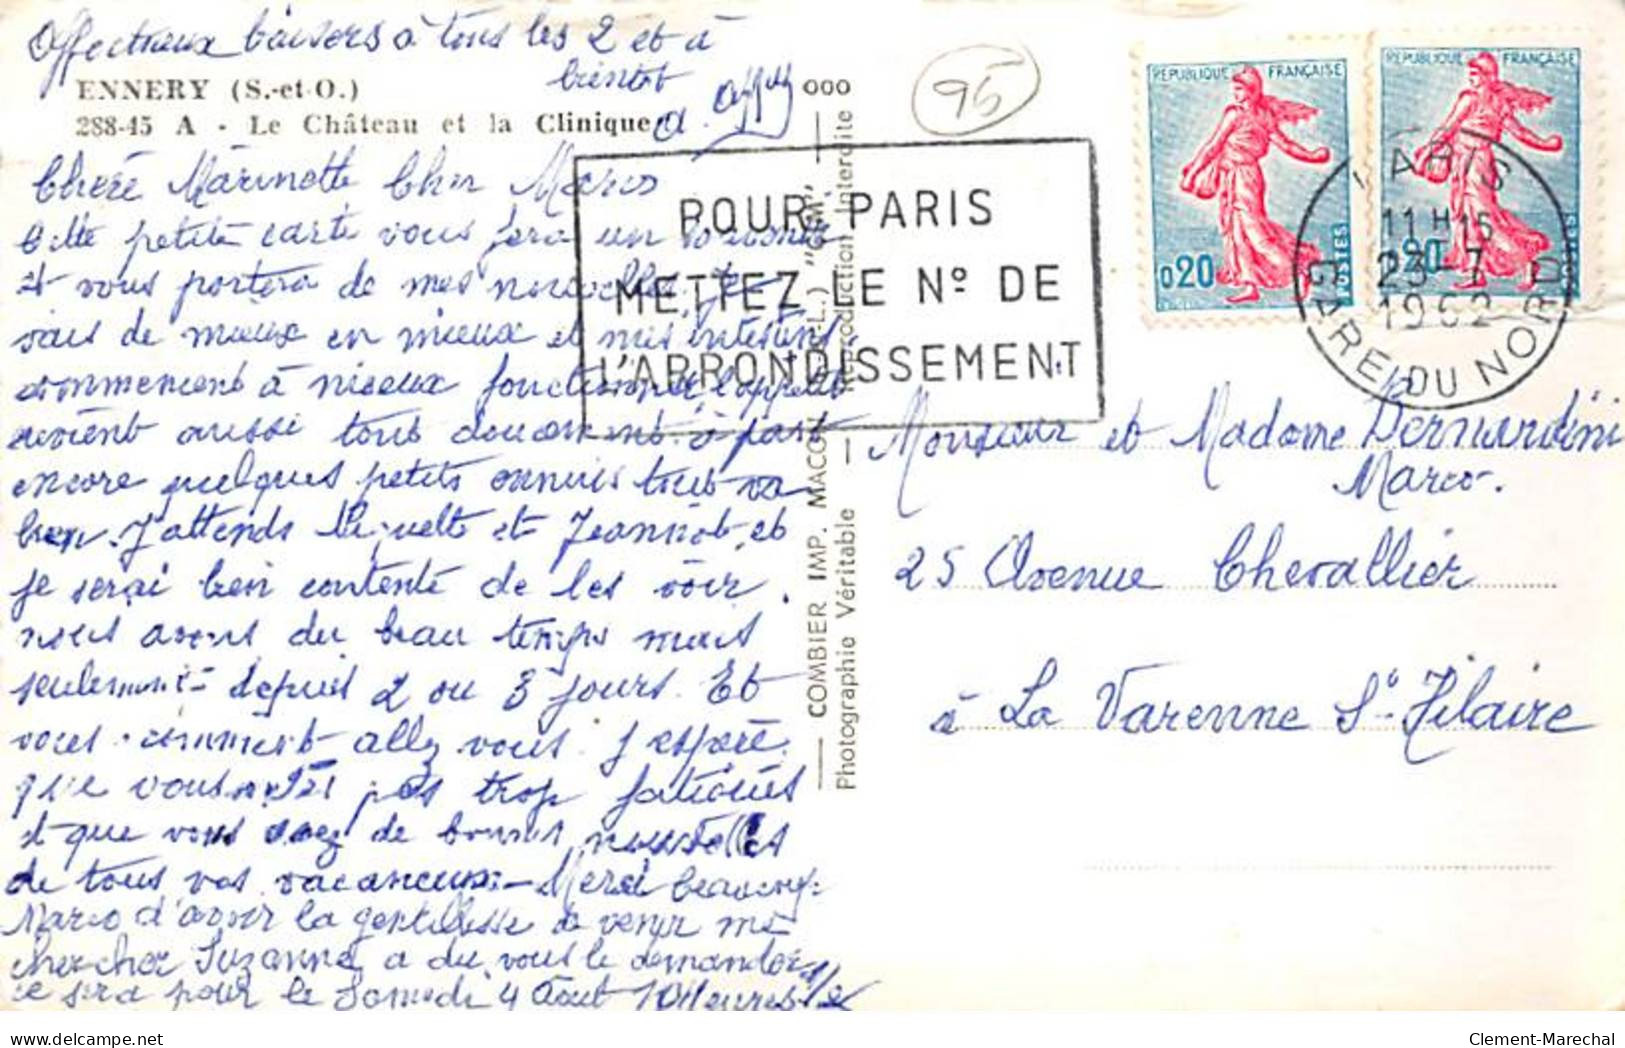 Affectueux baisers à tous les 2 et à
bientôt
ENNERY (S.-et-O.)
288-45 A - Le Château et la Clinique
Chère Marinette Cher Marco
Cette petite carte vous fera un
et vous portera de mes nouvelles. Je
vais de mieux en mieux et mes intestins
commencent à mieux fonctionner, l'appétit
revient aussi tout doucement. à part
encore quelques petits ennuis tout va
bien. J'attends Huguette et Jeannot, et
je serai bien contente de les voir.
nous avons du beau temps mais
seulement depuis 2 ou 3 jours. Et
vous comment allez vous. J'espère
que vous êtes pas trop fatigués
et que vous avez de bonnes nouvelles
de tous vos vacanciers - Merci beaucoup
Marco d'avoir la gentillesse de venir me
chercher Suzanne a du vous le demander
ce sera pour le Samedi 4 Aout 10 Heures 1/2
OOO
COMBIER IMP. MACON (S.-L.) "CIM"
Photographie Véritable — Reproduction Interdite
95
POUR PARIS
METTEZ LE Nº DE
L'ARRONDISSEMENT
REPUBLIQUE FRANÇAISE
0,20
POSTES
REPUBLIQUE FRANÇAISE
0,20
POSTES
PARIS
11 H 15
23-7
1962
GARE DU NORD
Monsieur et Madame Bernardini
Marco.
25 Avenue Chevallier
à La Varenne St Hilaire
Clement-Marechal